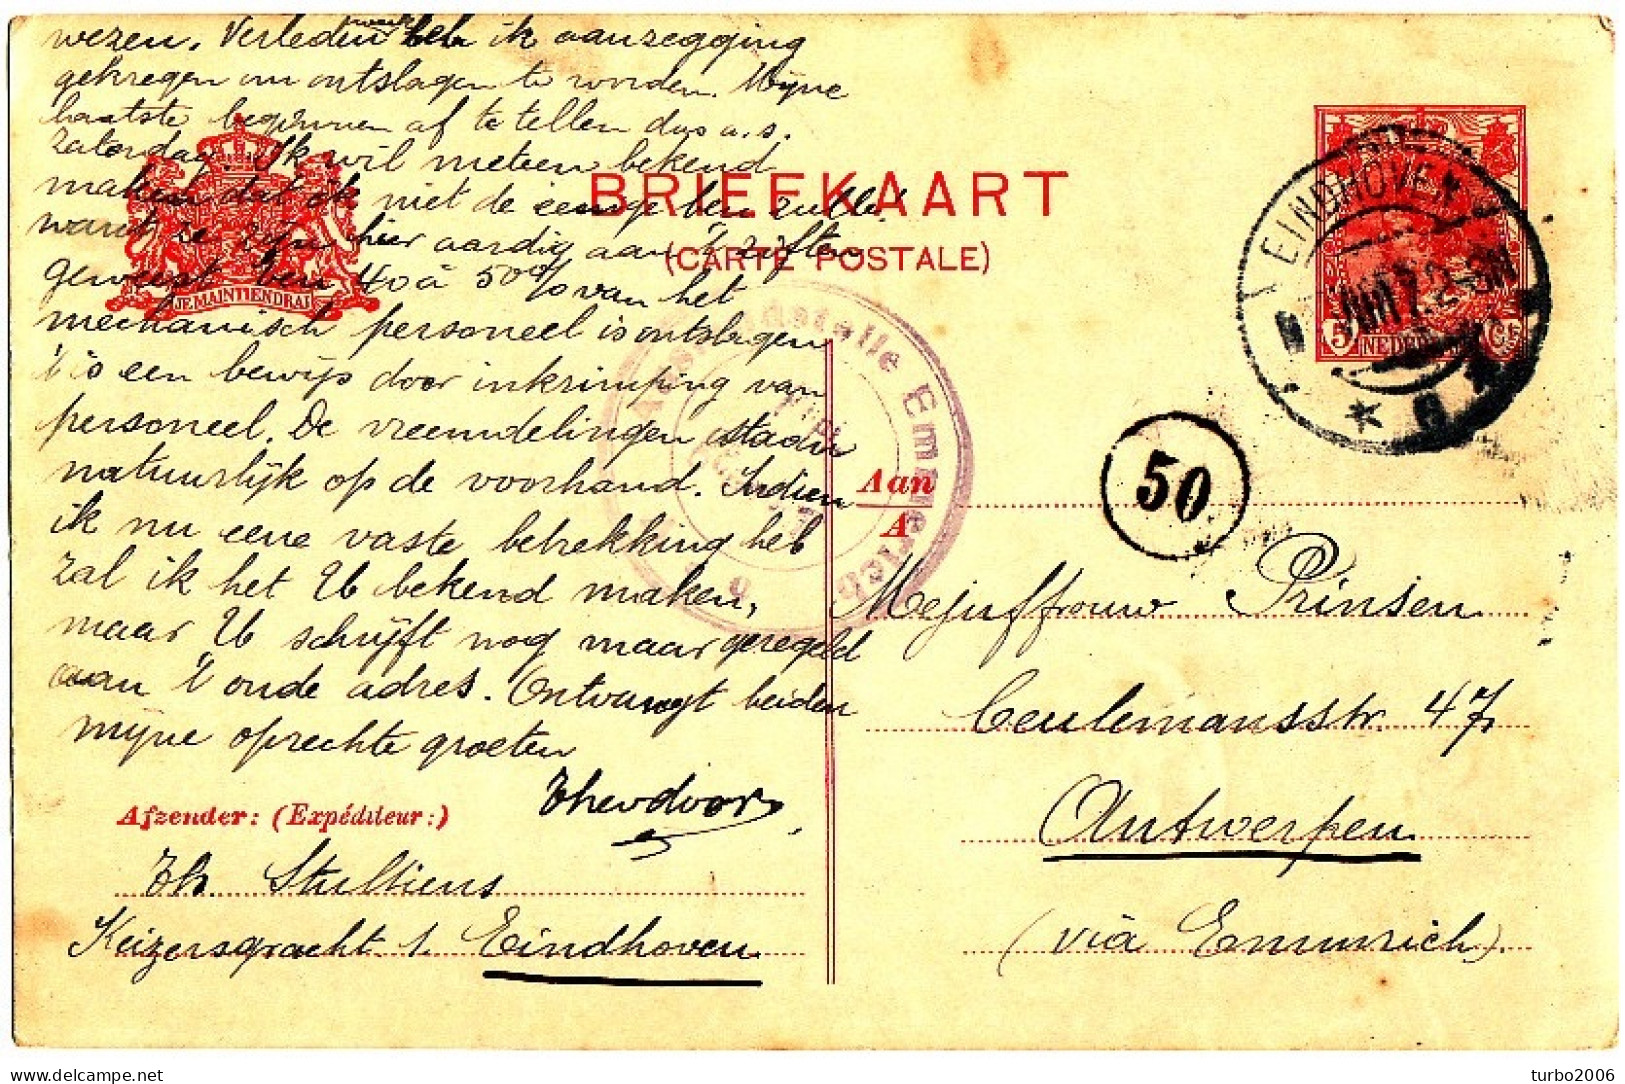 wezen. Verleden week heb ik aanzegging
gekregen om ontslagen te worden. Mijne
laatste beginnen af te tellen dus a.s.
Zaterdag. Ik wil meteen bekend
maken dat ik niet de eenige ben
want ze zijn hier aardig aan 't ziften
geweest den 40 à 50% van het
mechanisch personeel is ontslagen
't is een bewijs door inkrimping van
personeel. De vreemdelingen staan
natuurlijk op de voorhand. Indien
ik nu eene vaste betrekking heb
zal ik het U bekend maken,
maar U schrijft nog maar geregeld
aan 't oude adres. Ontvangt beiden
mijne oprechte groeten
Theodoor
JE MAINTIENDRAI
BRIEFKAART
(CARTE POSTALE)
EINDHOVEN
5 NEDERLAND Ct
50
Emmerich
Aan
A
Mejuffrouw Prinsen
Ceulemansstr. 47,
Antwerpen
(via Emmrich).
Afzender: (Expéditeur:)
Th. Stultiens
Keizersgracht 1. Eindhoven
delcampe.net
turbo2006